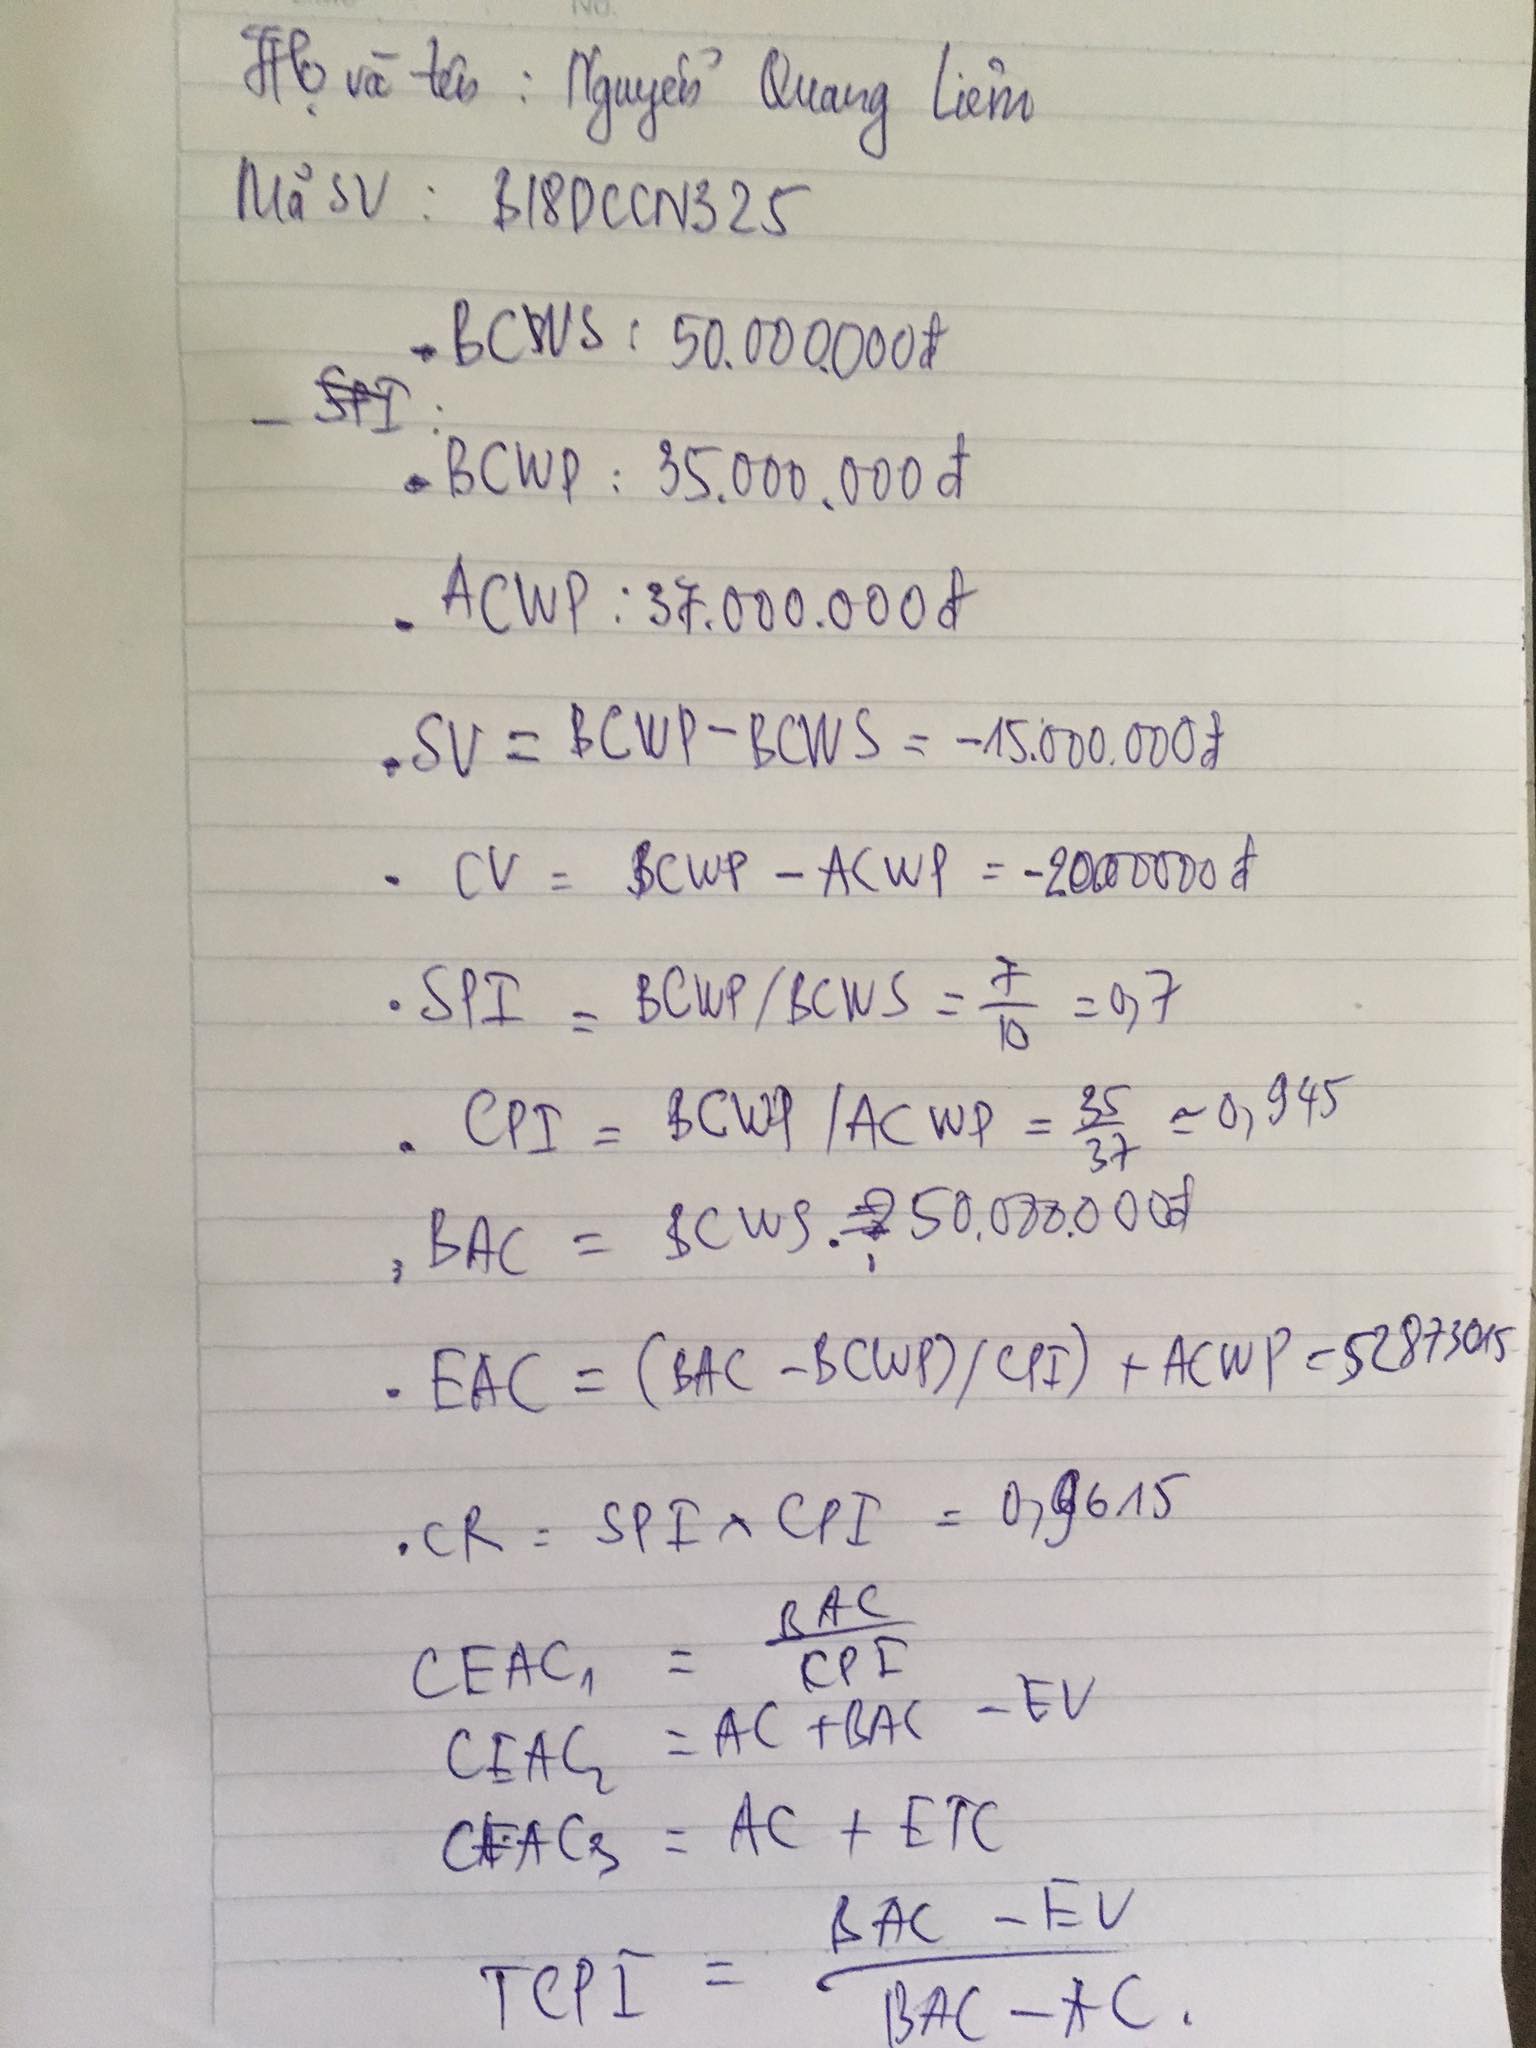 No.
Họ và tên : Nguyễn Quang Liêm
Mã SV : B18DCCN325
• BCWS : 50.000.000đ
- SPI :
• BCWP : 35.000.000đ
• ACWP : 37.000.000đ
• SV = BCWP - BCWS = -15.000.000đ
• CV = BCWP - ACWP = -2000000đ
• SPI = BCWP/BCWS = 7/10 = 0,7
• CPI = BCWP/ACWP = 35/37 ≈ 0,945
, BAC = BCWS. 50.000.000đ
• EAC = (BAC - BCWP)/CPI) + ACWP = 52873015
• CR = SPI × CPI = 0,6615
CEAC₁ = BAC/CPI
CEAC₂ = AC + BAC - EV
CEAC₃ = AC + ETC
TCPI = BAC - EV / BAC - AC.